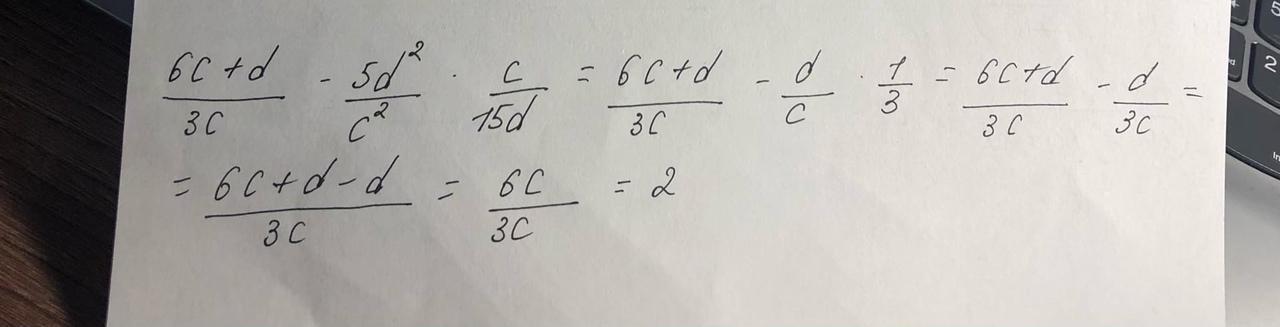 (6c+d)/(3c) - (5d²)/(c²) · c/(15d) = (6c+d)/(3c) - d/c · 1/3 = (6c+d)/(3c) - d/(3c) =
= (6c+d-d)/(3c) = (6c)/(3c) = 2